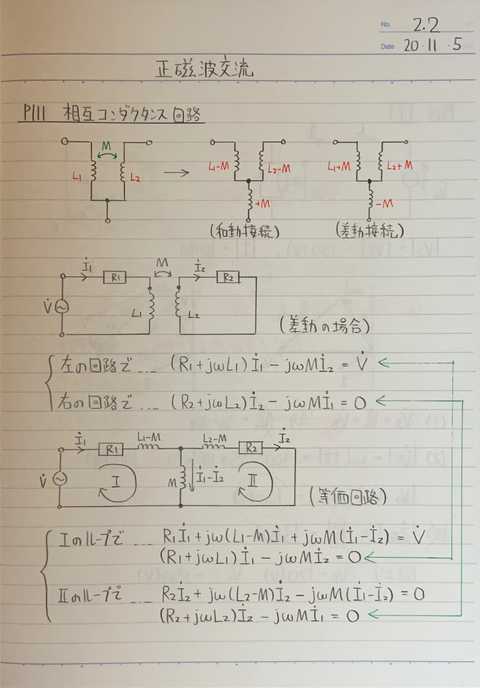 No. 2.2
Date 20・11・5
正磁波交流
P111 相互コンダクタンス回路
M
L1 L2
L1-M L2-M
+M
(和動接続)
L1+M L2+M
-M
(差動接続)
İ1 R1 M İ2 R2
V̇ L1 L2
(差動の場合)
左の回路で ---- (R1+jωL1)İ1-jωMİ2=V̇
右の回路で ---- (R2+jωL2)İ2-jωMİ1=0
İ1 R1 L1-M L2-M R2 İ2
V̇ I M İ1-İ2 II
(等価回路)
Iのループで R1İ1+jω(L1-M)İ1+jωM(İ1-İ2)=V̇
(R1+jωL1)İ1-jωMİ2=0
IIのループで R2İ2+jω(L2-M)İ2-jωM(İ1-İ2)=0
(R2+jωL2)İ2-jωMİ1=0